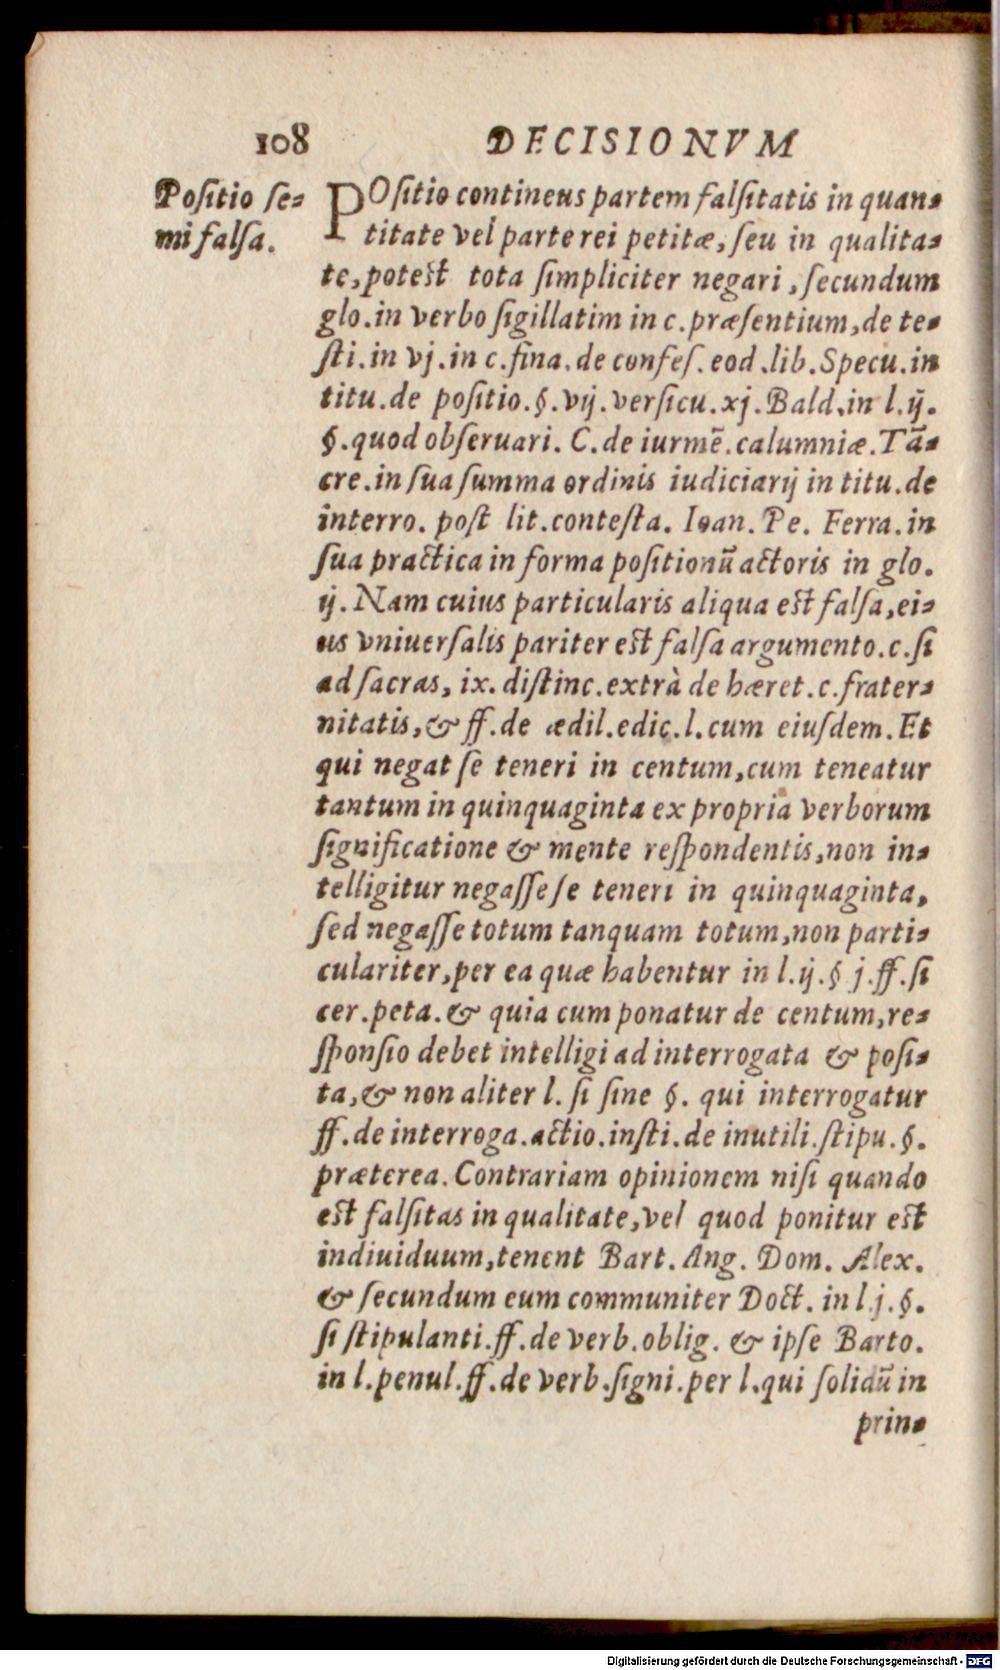 108 DECISIONVM
Positio se-
mi falsa.
POsitio continens partem falsitatis in quan-
titate vel parte rei petitæ, seu in qualita-
te, potest tota simpliciter negari, secundum
glo. in verbo sigillatim in c. præsentium, de te-
sti. in vj. in c. fina. de confes. eod. lib. Specu. in
titu. de positio. §. vij. versicu. xj. Bald. in l. ij.
§. quod obseruari. C. de iurmē. calumniæ. Tā-
cre. in sua summa ordinis iudiciarij in titu. de
interro. post lit. contesta. Ioan. Pe. Ferra. in
sua practica in forma positionū actoris in glo.
ij. Nam cuius particularis aliqua est falsa, ei-
us vniuersalis pariter est falsa argumento. c. si
ad sacras, ix. distinc. extrà de hæret. c. frater-
nitatis, & ff. de ædil. edic. l. cum eiusdem. Et
qui negat se teneri in centum, cum teneatur
tantum in quinquaginta ex propria verborum
significatione & mente respondentis, non in-
telligitur negasse se teneri in quinquaginta,
sed negasse totum tanquam totum, non parti-
culariter, per ea quæ habentur in l. ij. § j. ff. si
cer. peta. & quia cum ponatur de centum, re-
sponsio debet intelligi ad interrogata & posi-
ta, & non aliter l. si sine §. qui interrogatur
ff. de interroga. actio. insti. de inutili. stipu. §.
præterea. Contrariam opinionem nisi quando
est falsitas in qualitate, vel quod ponitur est
indiuiduum, tenent Bart. Ang. Dom. Alex.
& secundum eum communiter Doct. in l. j. §.
si stipulanti. ff. de verb. oblig. & ipse Barto.
in l. penul. ff. de verb. signi. per l. qui solidū in
prin-
Digitalisierung gefördert durch die Deutsche Forschungsgemeinschaft - DFG